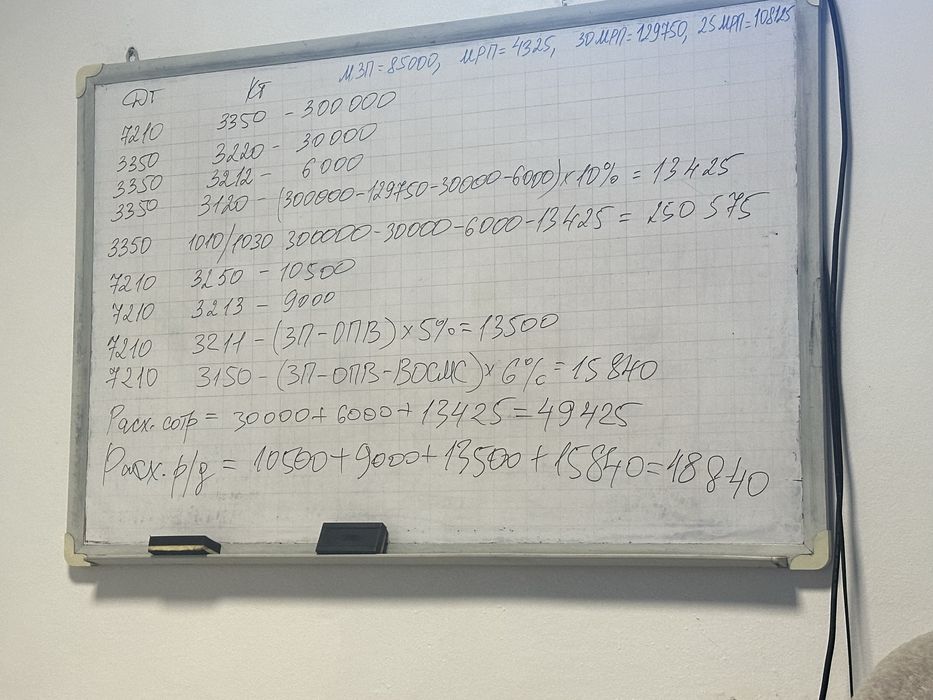 МЗП = 85000, МРП = 4325, 30 МРП = 129750, 25 МРП = 108125
Дт Кт
7210 3350 - 300 000
3350 3220 - 30 000
3350 3212 - 6 000
3350 3120 - (300000-129750-30000-6000)×10% = 13 425
3350 1010/1030 300000-30000-6000-13425 = 250 575
7210 3250 - 10500
7210 3213 - 9000
7210 3211 - (ЗП-ОПВ)×5% = 13500
7210 3150 - (ЗП-ОПВ-ВОСМС)×6% = 15 840
Расх. сотр = 30000+6000+13425 = 49425
Расх. р/д = 10500+9000+13500+15840=48 840